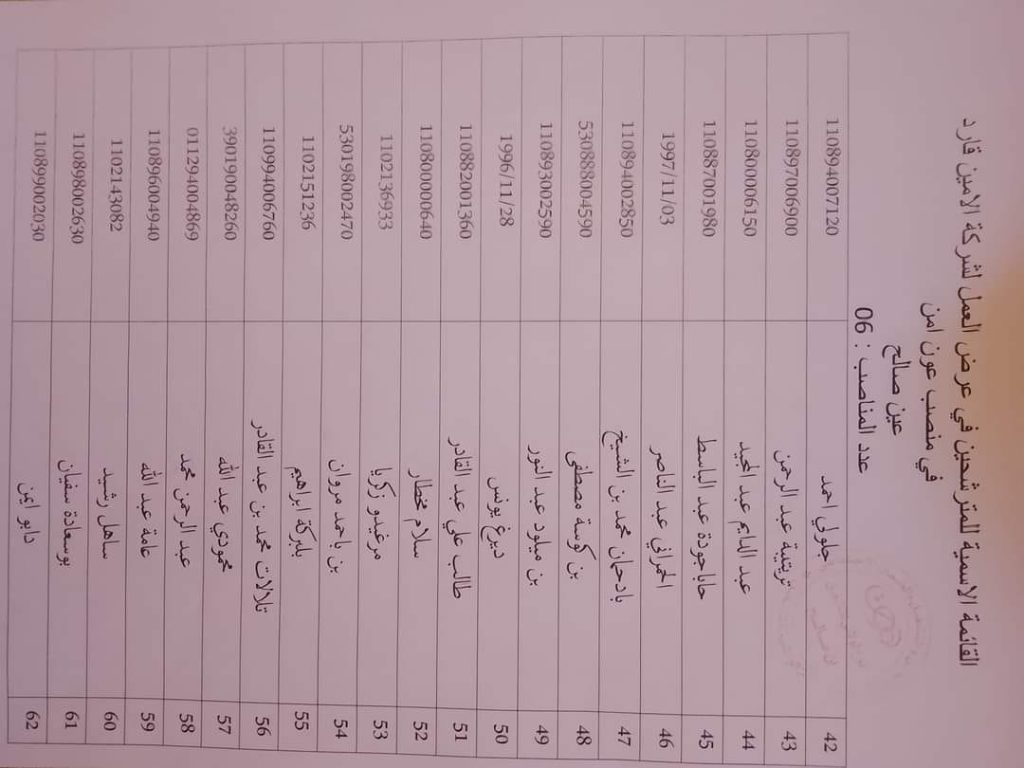 القائمة الاسمية للمترشحين في عرض العمل لشركة الامين قارد
في منصب عون امن
عين صالح
عدد المناصب : 06
42 جلولي احمد 110894007120
43 تريتية عبد الرحمن 110897006900
44 عبد الدايم عبد المجيد 110800006150
45 حاباجودة عبد الباسط 110887001980
46 الحمراني عبد الناصر 1997/11/03
47 بادحمان محمد بن الشيخ 110894002850
48 بن كوسة مصطفى 530888004590
49 بن ميلود عبد النور 110893002590
50 ديرغ يونس 1996/11/28
51 طالب علي عبد القادر 110882001360
52 سلام مختار 110800000640
53 مرغيدو زكريا 1102136933
54 بن باحمد مروان 530198002470
55 بلبركة ابراهيم 1102151236
56 تلالات محمد بن عبد القادر 110994006760
57 محمودي عبد الله 390190048260
58 عبد الرحمن محمد 011294004869
59 عامة عبد الله 110896004940
60 ساهل رشيد 1102143082
61 بوسعادة سفيان 110898002630
62 دابو ايمن 110899002030